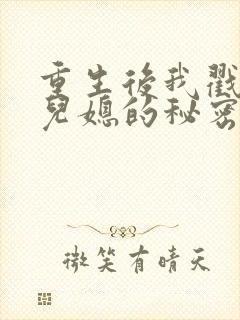 重生後我戳
兒媳的秘密
微笑有晴天